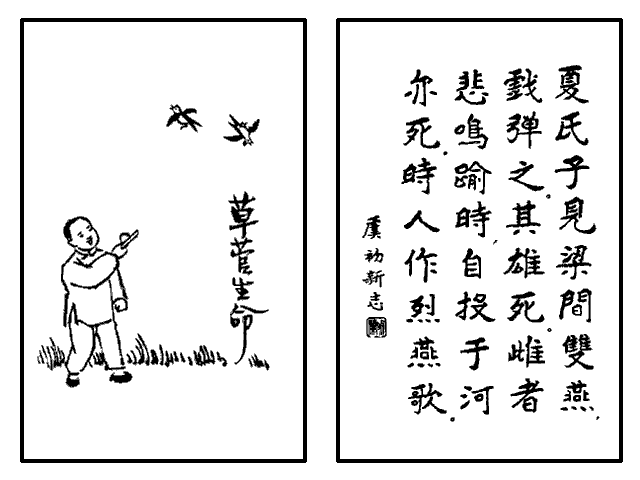 草菅生命
夏氏子見梁間雙燕,
戲彈之.其雄死.雌者
悲鳴踰時,自投于河
亦死.時人作烈燕歌.
虞初新志